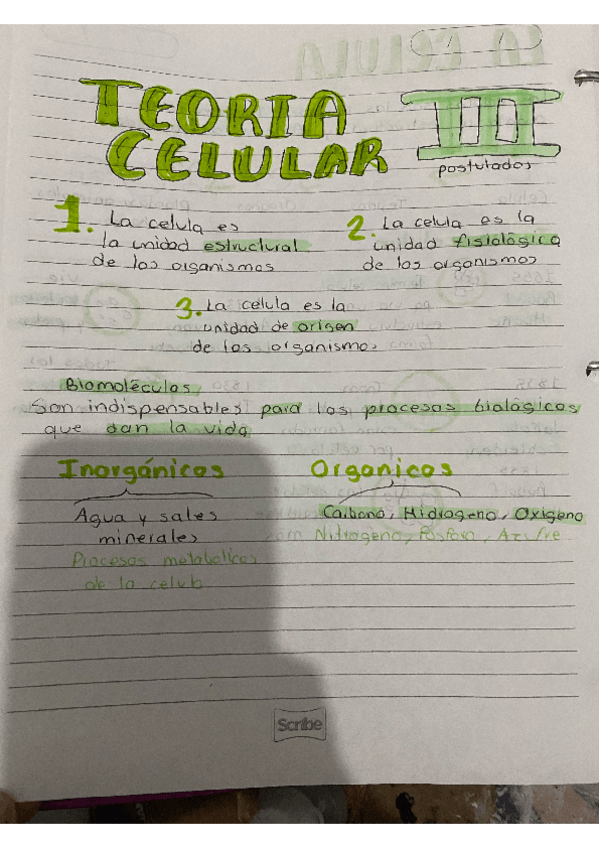 TEORIA
CELULAR
III
postulados
1. La celula es
la unidad estructural
de los organismos
2. La celula es la
unidad fisiológica
de los organismos
3. La celula es la
unidad de origen
de los organismos
Biomoléculas
Son indispensables para los procesos biológicos
que dan la vida
Inorgánicos
Agua y sales
minerales
Procesos metabolicos
de la celula
Organicos
Carbono, Hidrogeno, Oxigeno
Nitrogeno, Fosforo, Azufre
Scribe